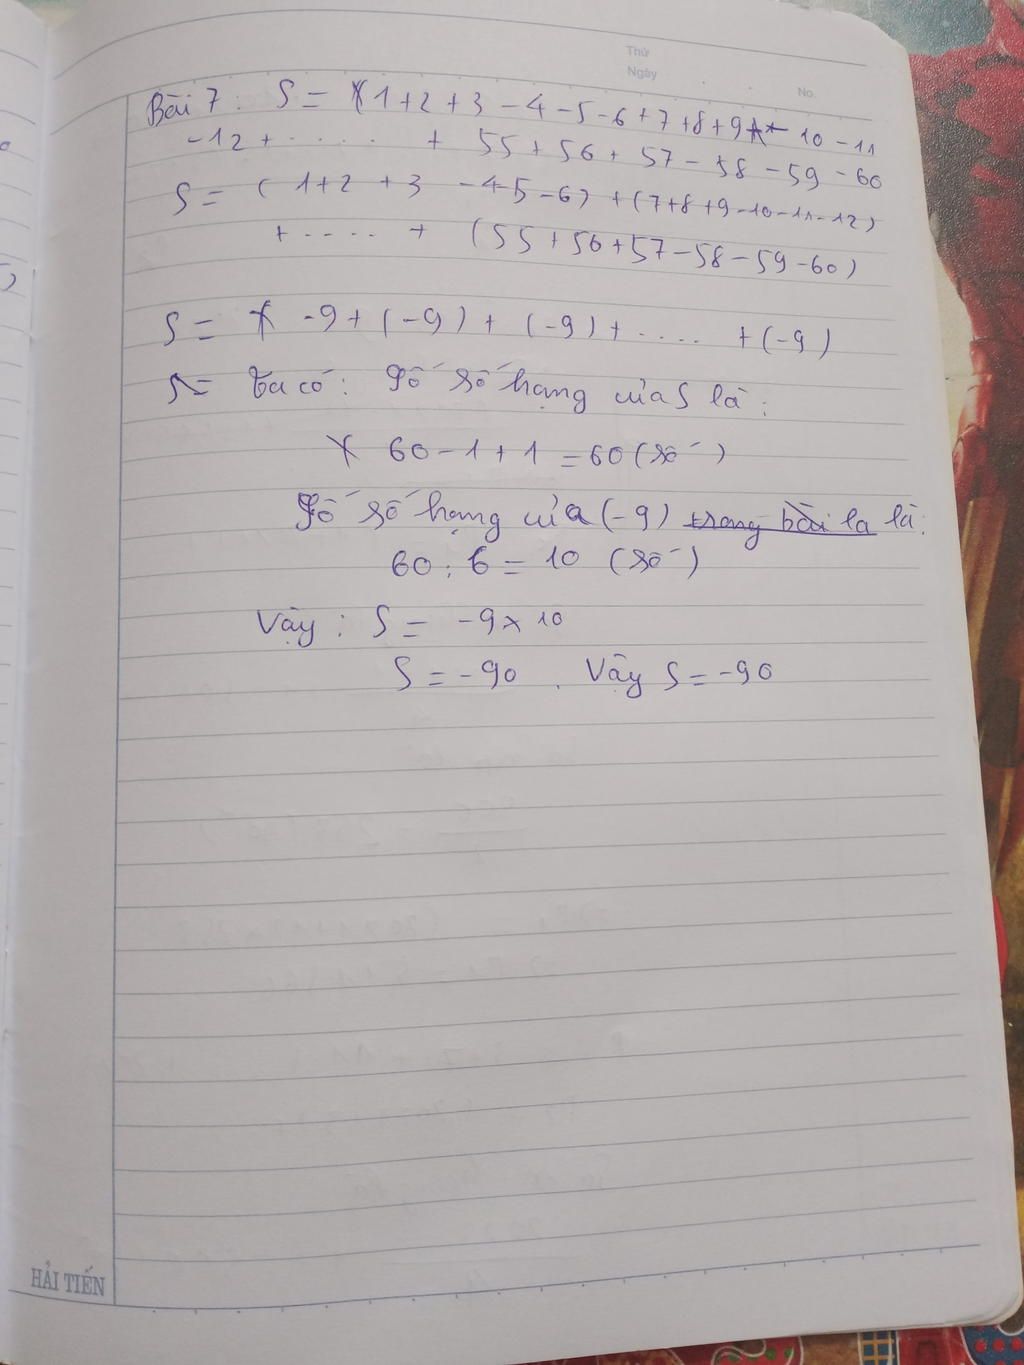 Thứ
Ngày
No.
Bài 7: S = (1+2+3-4-5-6+7+8+9-10-11
-12+.....+ 55+56+57-58-59-60
S = (1+2+3-4-5-6)+(7+8+9-10-11-12)
+.....+ (55+56+57-58-59-60)
S = -9+(-9)+(-9)+.....+(-9)
S= Ta có: Số số hạng của S là:
60-1+1=60(số)
Số số hạng của (-9) trong bài la là:
60:6=10 (số)
Vậy: S = -9x10
S=-90. Vậy S=-90
HẢI TIẾN